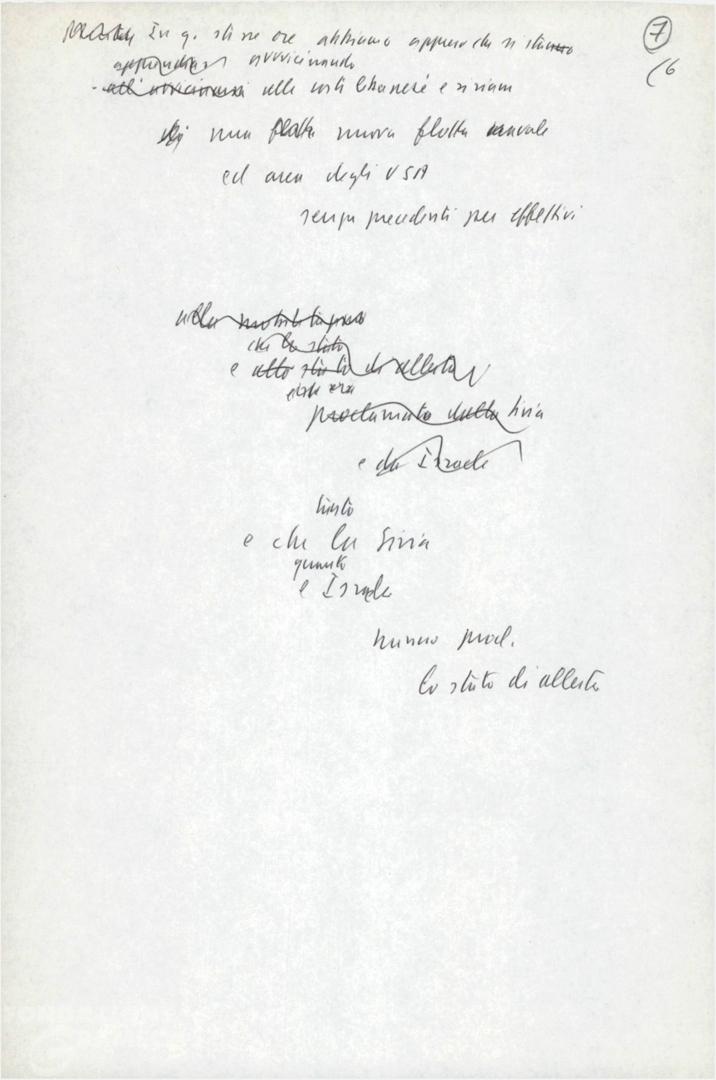 7
16
In q. stesse ore abbiamo appreso che si stanno
avvicinando
alle coste libanesi e siriane
una flotta nuova flotta navale
ed aerea degli USA
senza precedenti per effettivi
alla
che lo stato
e allo stato di allerta
proclamato dalla Siria
e da Israele
tanto
e che la Siria
quanto
e Israele
hanno procl.
lo stato di allerta